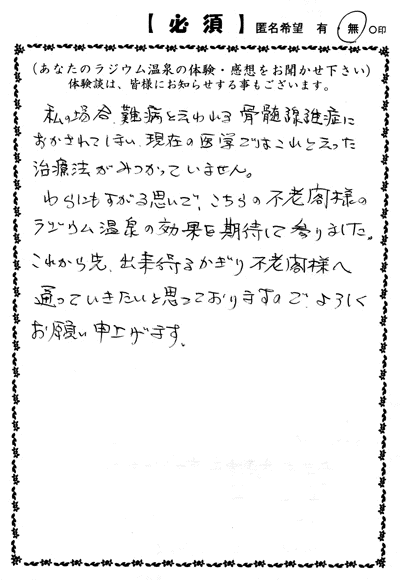 【必須】 匿名希望 有・無 ○印
(あなたのラジウム温泉の体験・感想をお聞かせ下さい)
体験談は、皆様にお知らせする事もございます。
私の場合、難病と云われる骨髄線維症に
おかされてしまい、現在の医学ではこれといった
治療法がみつかっていません。
わらにもすがる思いで、こちらの不老閣様の
ラジウム温泉の効果を期待して参りました。
これから先、出来得るかぎり不老閣様へ
通っていきたいと思っておりますので、よろしく
お願い申上げます。